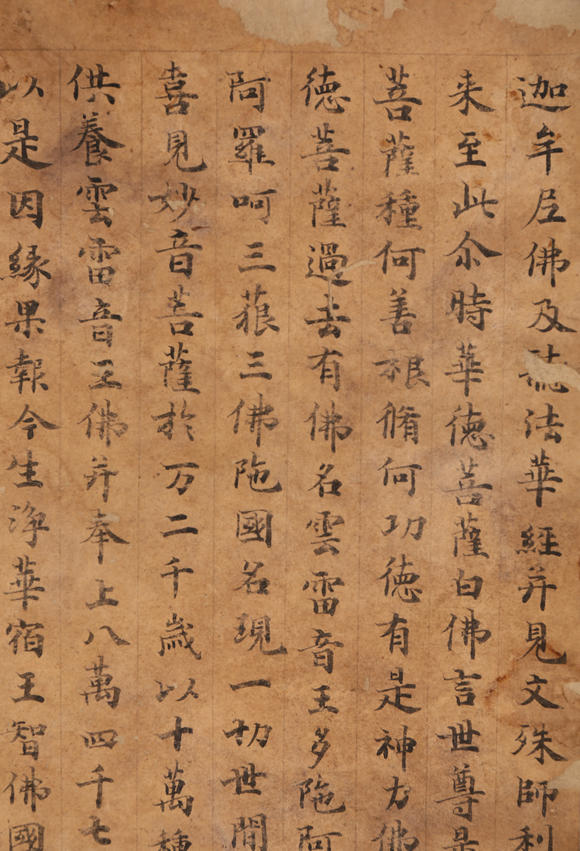 迦牟尼佛及聽法華經并見文殊師利
来至此尒時華德菩薩白佛言世尊是
菩薩種何善根脩何功德有是神力佛
德菩薩過去有佛名雲雷音王多陁阿
阿羅呵三藐三佛陁國名現一切世間
喜見妙音菩薩於万二千歳以十萬種
供養雲雷音王佛并奉上八萬四千七
以是因緣果報今生淨華宿王智佛國